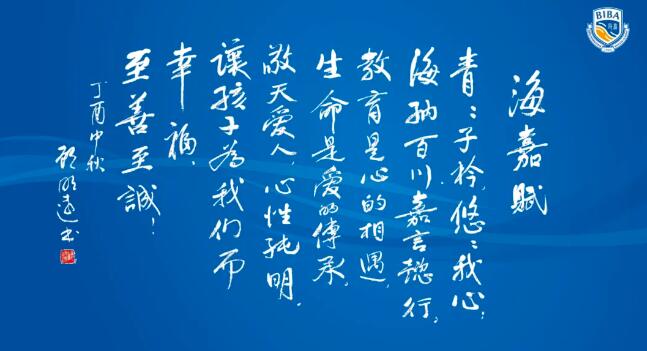 海嘉賦
青:子衿,悠:我心;
海納百川,嘉言懿行,
教育是心的相遇,
生命是愛的傳承,
敬天愛人,心性純明,
讓孩子為我們而
幸福,
至善至誠!
丁酉中秋
顧明遠书
BIBA
海嘉